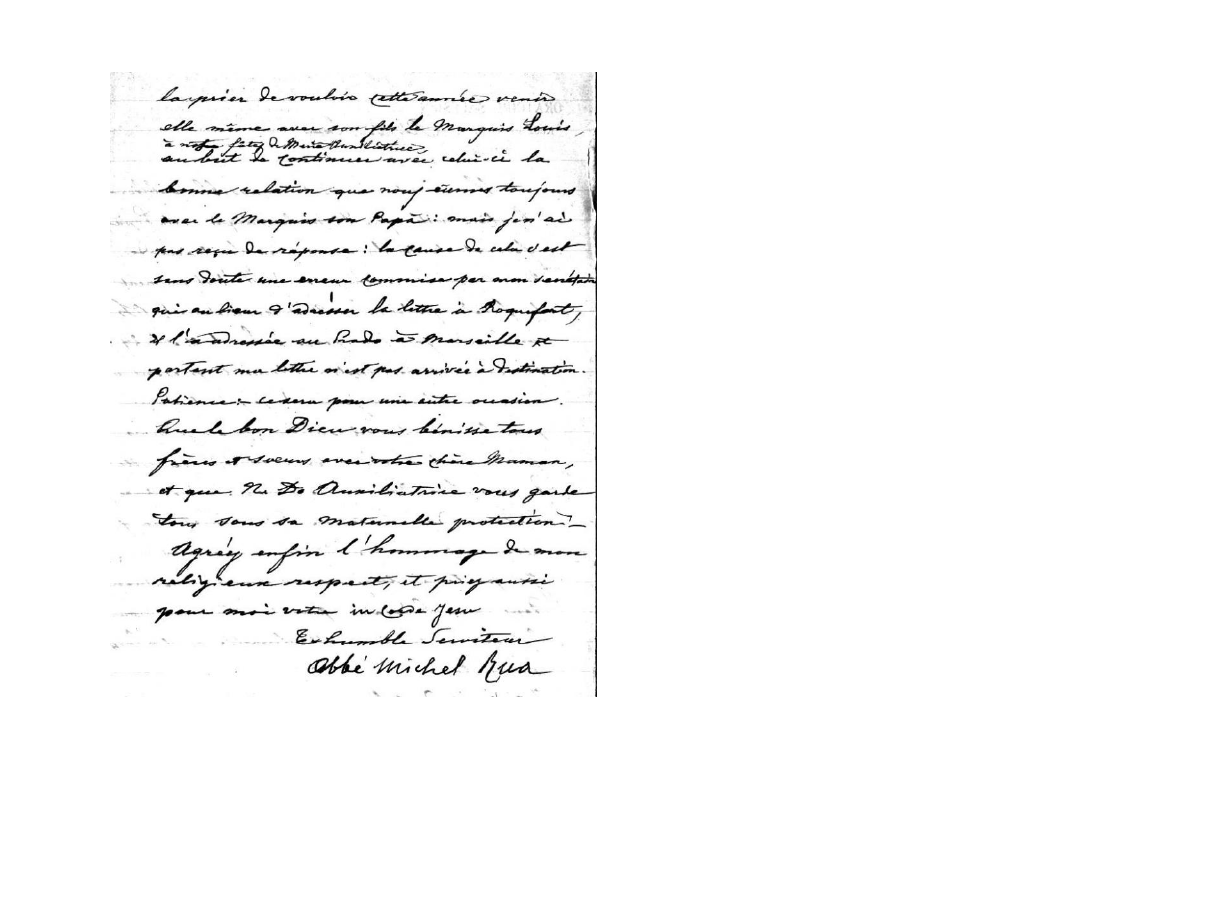 la prier de vouloir cette année venir
elle même avec son fils le Marquis Louis,
à notre fête de Marie Auxiliatrice,
au but de continuer avec celui-ci la
bonne relation que nous eûmes toujours
avec le Marquis son Papà: mais je n'ai
pas reçu de réponse: la cause de cela c'est
sans doute une erreur commise par mon secrétaire
qui au lieu d'adresser la lettre à Roquefort,
il l'a adressée au Prado à Marseille et
partant ma lettre n'est pas arrivée à destination.
Patience:- ce sera pour une autre occasion.
Que le bon Dieu vous bénisse tous
frères et soeurs avec votre chère Maman,
et que N. De Auxiliatrice vous garde
tous sous sa maternelle protection!-
Agréez enfin l'hommage de mon
religieux respect, et priez aussi
pour moi votre in Corde Jesu
humble Serviteur
Abbé Michel Rua